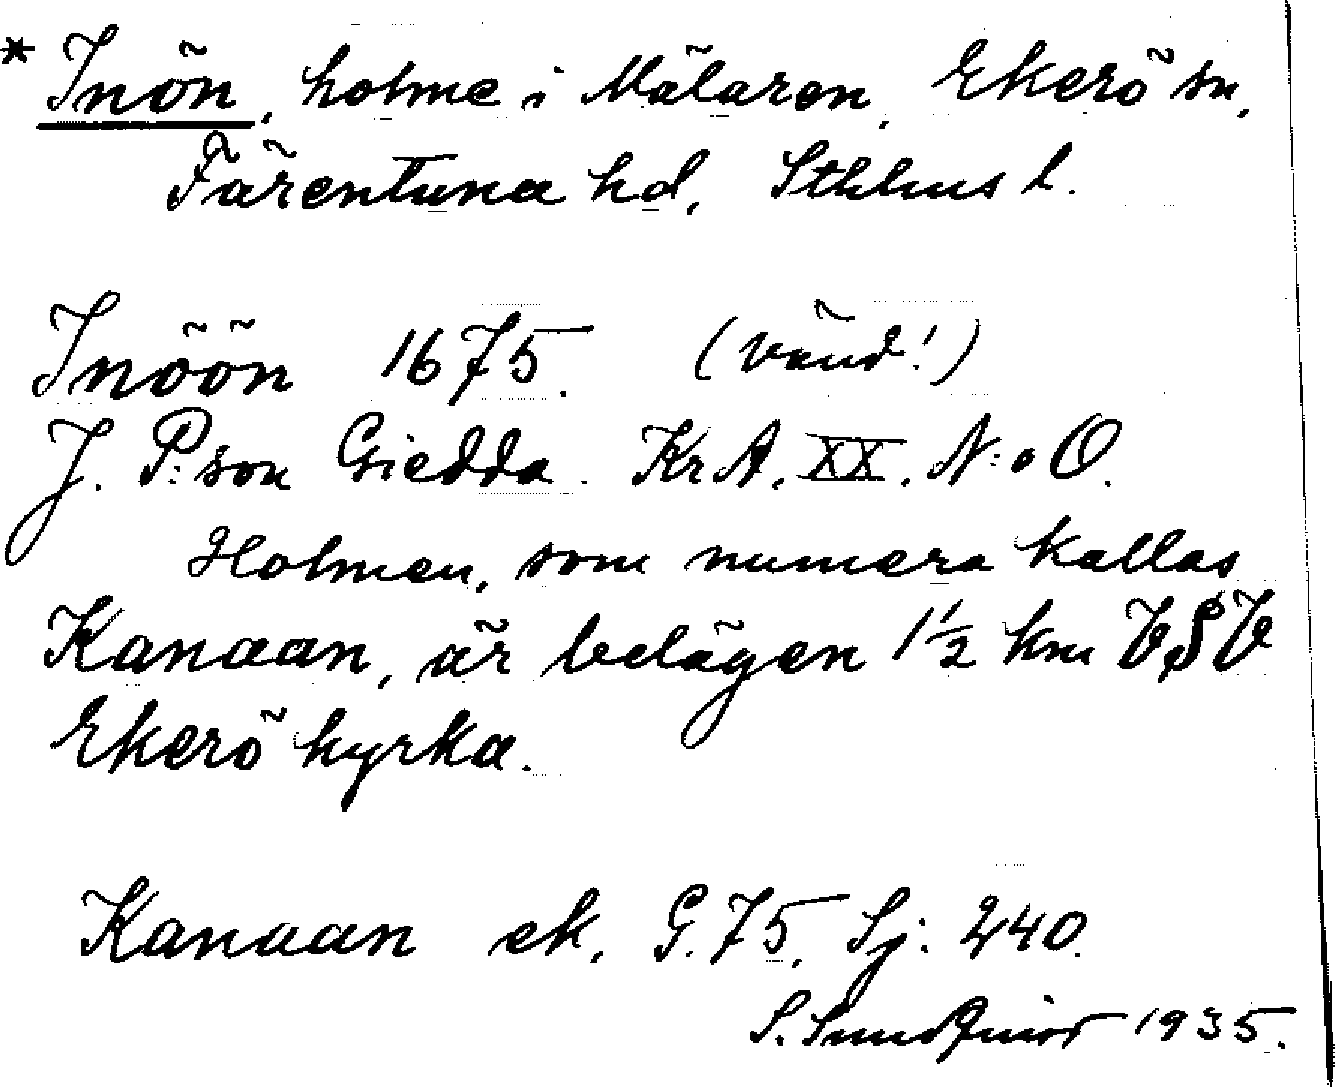 * Inön, holme i Mälaren, Ekerö sn,
Färentuna hd, Sthlms l.
Inöön 1675. (vänd!)
J. P:son Giedda. KrA. XX. N:o O.
Holmen, som numera kallas
Kanaan, är belägen 1½ km VSV
Ekerö kyrka.
Kanaan ek. G. 75, Sj: 240.
S. Sundquist 1935.